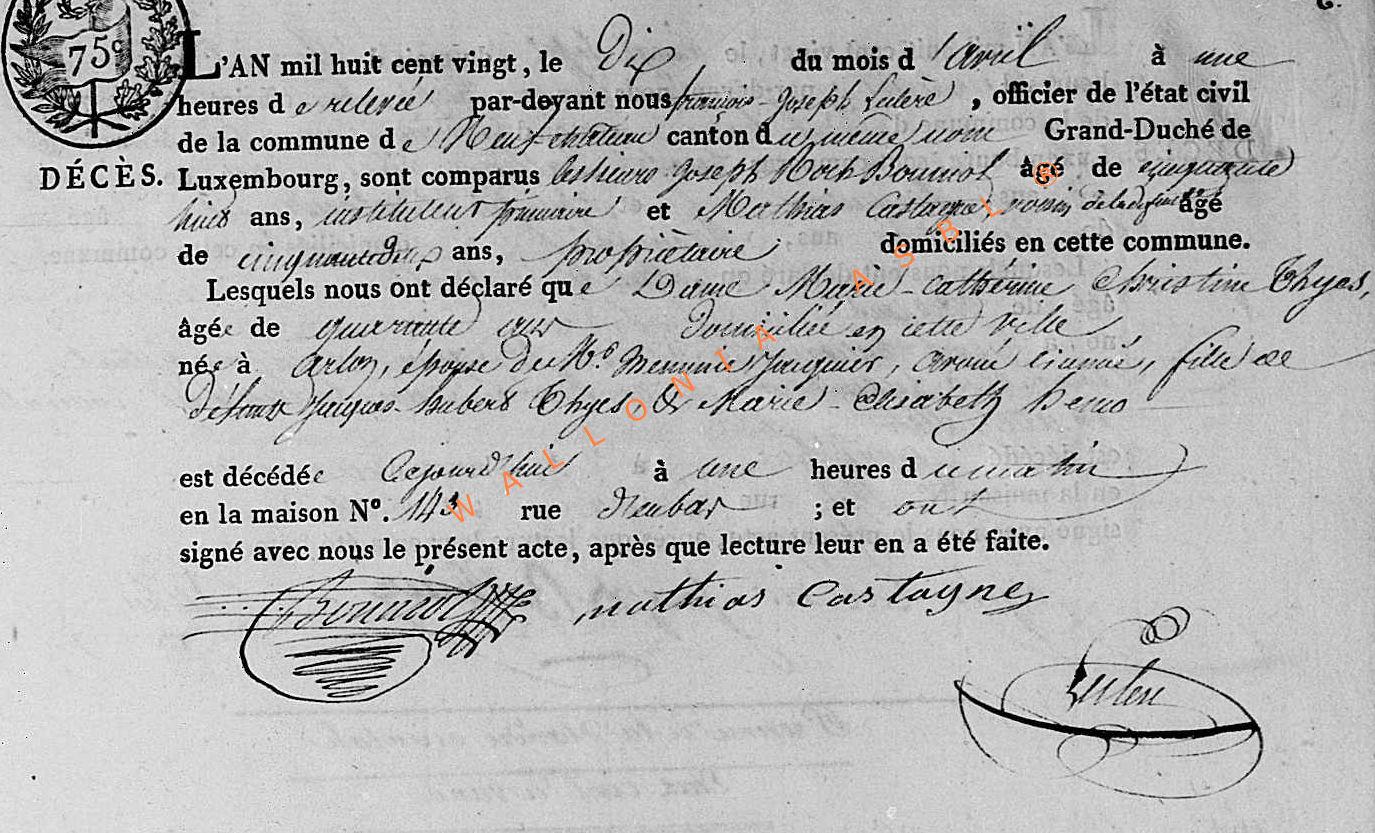 75c
L'AN mil huit cent vingt, le Dix du mois d'avril à une
heures de relevée par-devant nous françois-Joseph , officier de l'état civil
de la commune de Neufchateau canton du même nom Grand-Duché de
DÉCÈS. Luxembourg, sont comparus les sieurs Joseph Roch Bournot âgé de cinquante
huit ans, instituteur primaire et Mathias Castagne, voisin de la defunte âgé
de cinquante ans, propriètaire domiciliés en cette commune.
Lesquels nous ont déclaré que Dame Marie-Cathérine Christine Thyes,
âgée de quarante ans domiciliée en cette ville
née à Arlon, épouse de Mr. Jacquier, avoué licencié, fille de
défunts Jacques-hubert Thyes, & Marie-Elisabeth
est décédée Cejourd'hui à une heures du matin
en la maison No. 143 rue ; et ont
signé avec nous le présent acte, après que lecture leur en a été faite.
Bournot mathias Castagne
WALLONIA ASBL ©